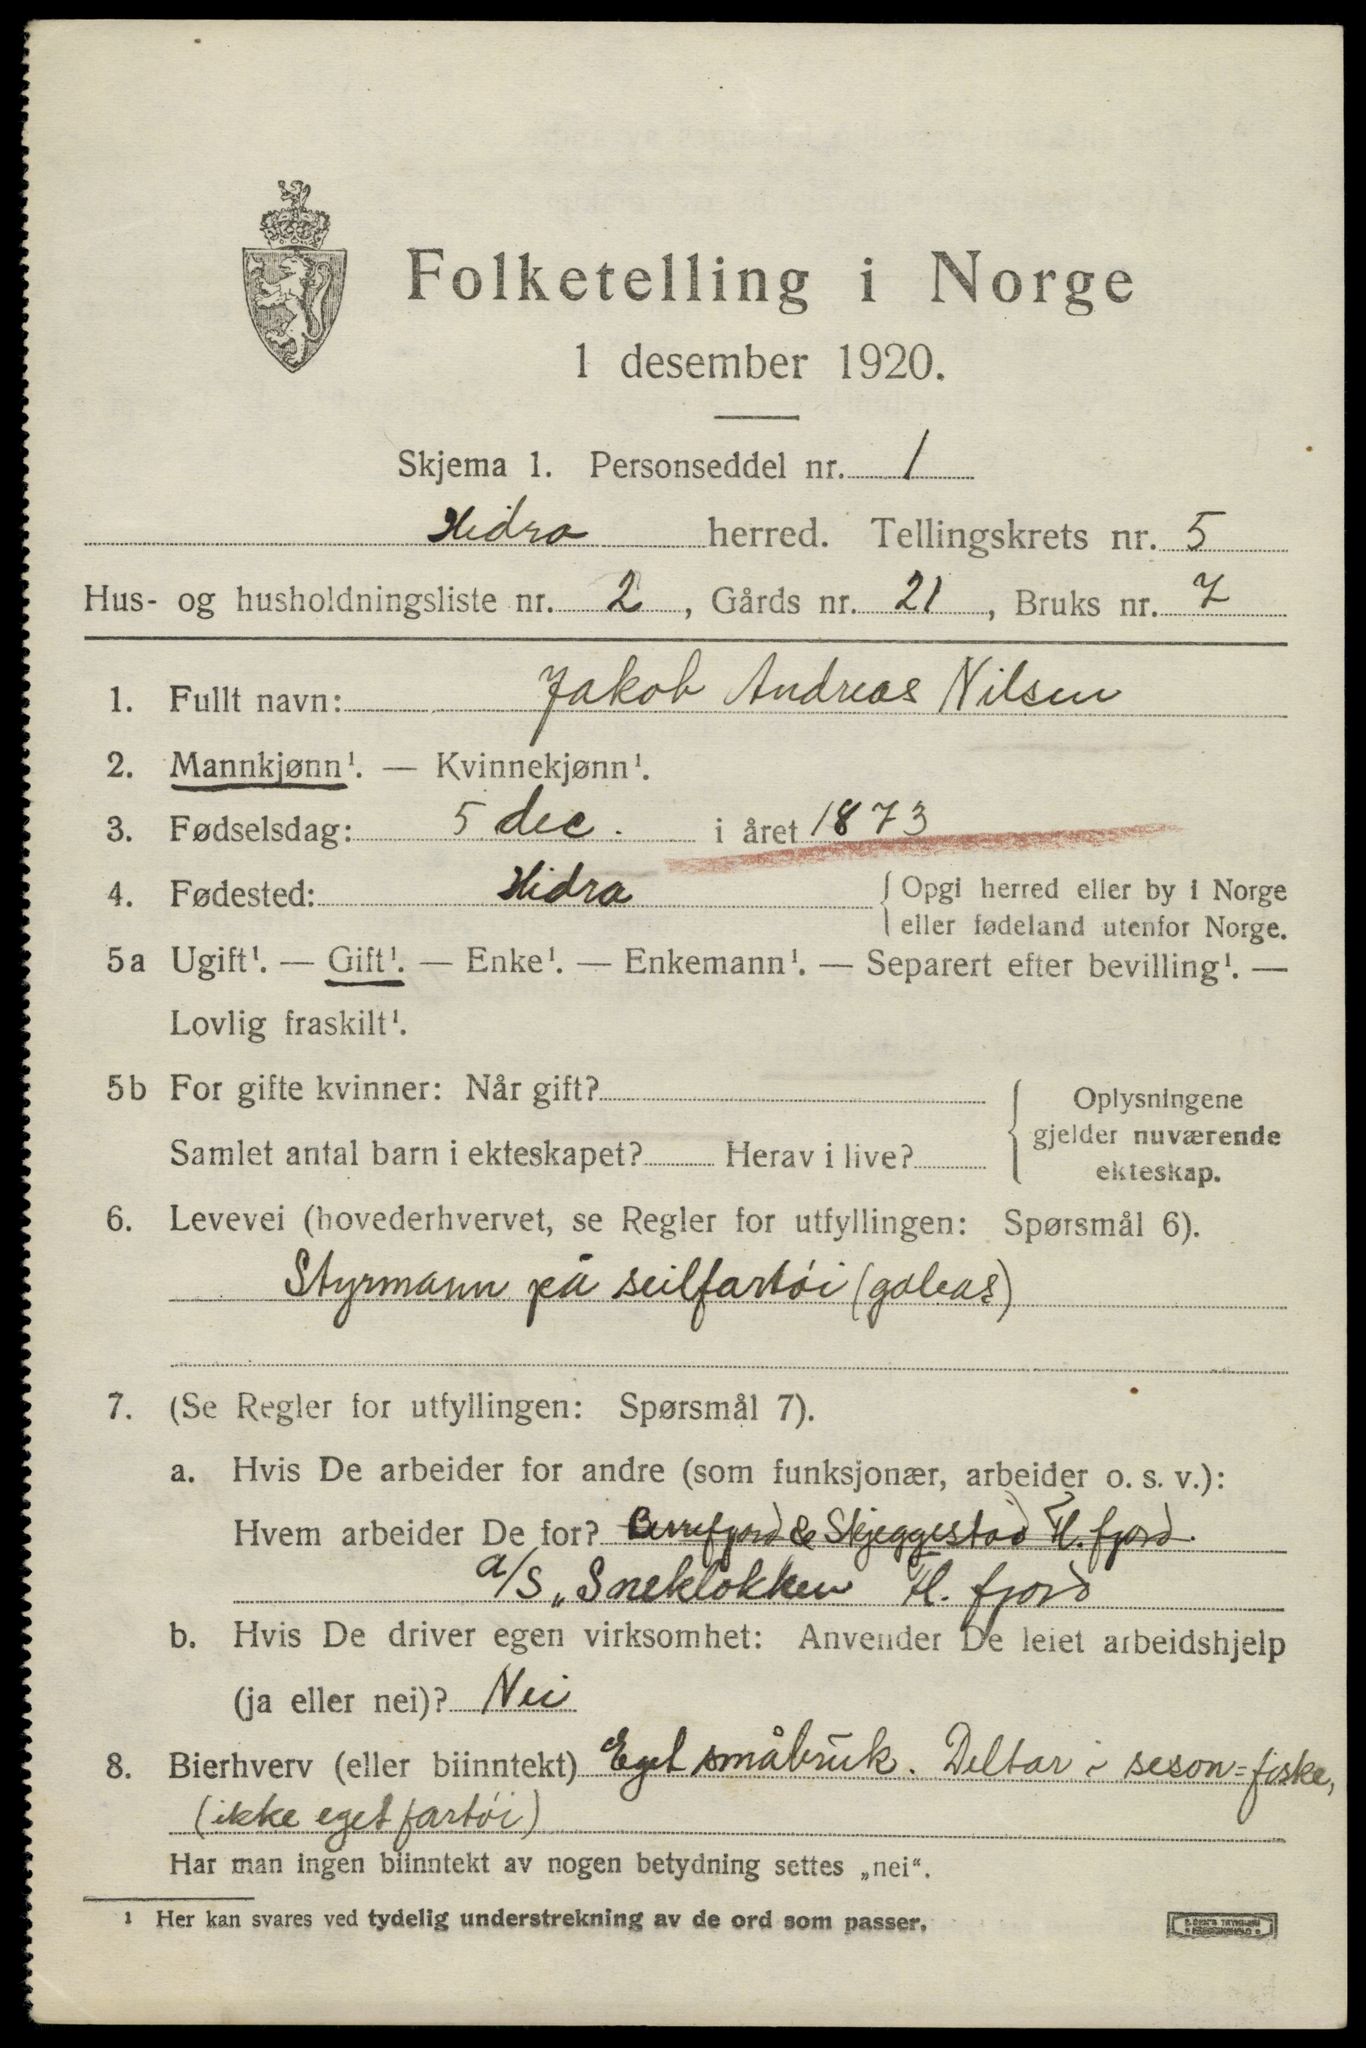 Folketelling i Norge
1 desember 1920.
Skjema 1. Personseddel nr. 1
Hidra herred. Tellingskrets nr. 5
Hus- og husholdningsliste nr. 2, Gårds nr. 21, Bruks nr. 7
1. Fullt navn: Jakob Andreas Nilsen
2. Mannkjønn¹. — Kvinnekjønn¹.
3. Fødselsdag: 5 dec. i året 1873
4. Fødested: Hidra { Opgi herred eller by i Norge
eller fødeland utenfor Norge.
5a Ugift¹. — Gift¹. — Enke¹. — Enkemann¹. — Separert efter bevilling¹. —
Lovlig fraskilt¹.
5b For gifte kvinner: Når gift?
Samlet antal barn i ekteskapet? Herav i live?
{ Oplysningene
gjelder nuværende
ekteskap.
6. Levevei (hovederhvervet, se Regler for utfyllingen: Spørsmål 6).
Styrmann på seilfartöi (galeas)
7. (Se Regler for utfyllingen: Spørsmål 7).
a. Hvis De arbeider for andre (som funksjonær, arbeider o. s. v.):
Hvem arbeider De for? & Skjeggestad Fl. fjord
a/s „Sneklokken Fl. fjord
b. Hvis De driver egen virksomhet: Anvender De leiet arbeidshjelp
(ja eller nei)? Nei
8. Bierhverv (eller biinntekt) Eget småbruk. Deltar i seson=fiske,
(ikke eget fartöi)
Har man ingen biinntekt av nogen betydning settes „nei“.
¹ Her kan svares ved tydelig understrekning av de ord som passer.